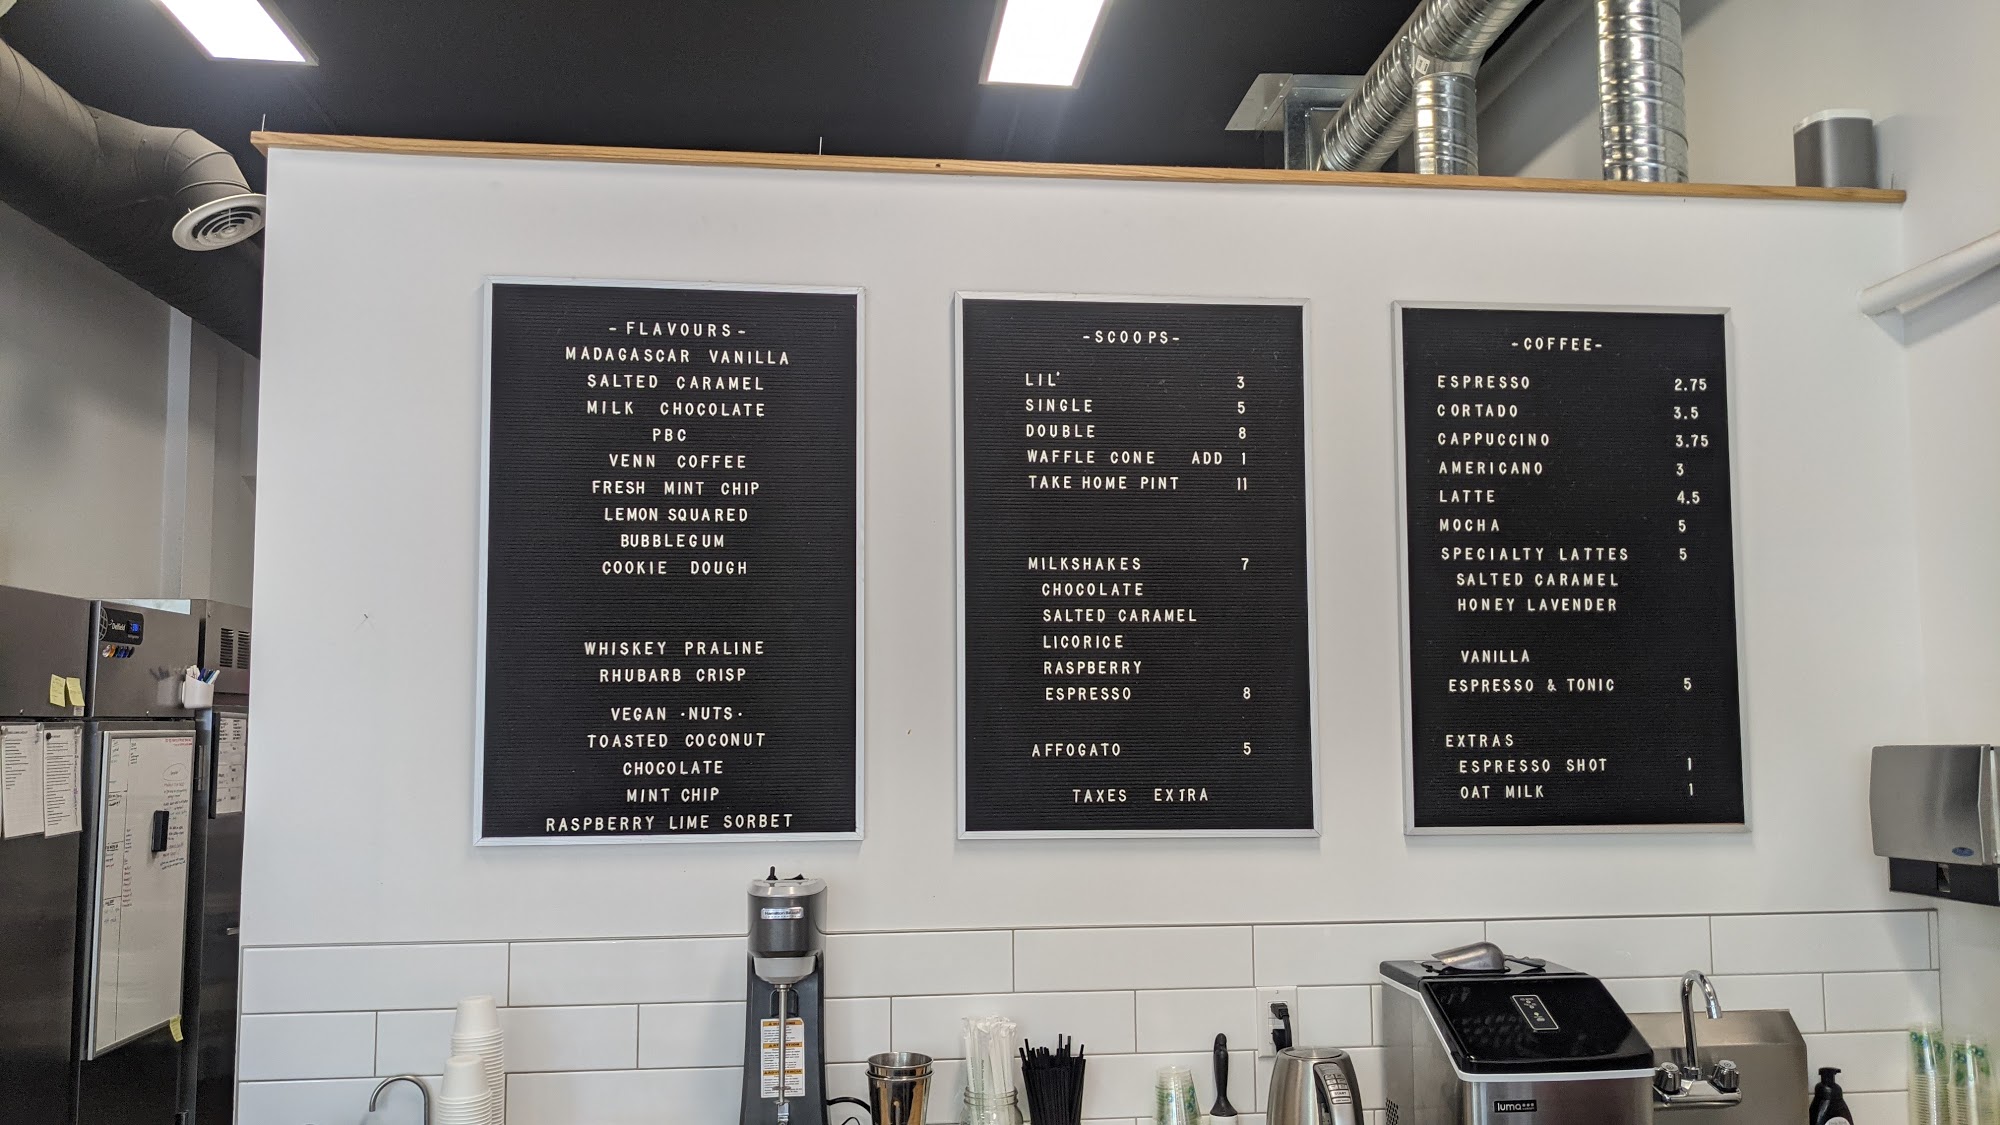 -FLAVOURS-
MADAGASCAR VANILLA
SALTED CARAMEL
MILK CHOCOLATE
PBC
VENN COFFEE
FRESH MINT CHIP
LEMON SQUARED
BUBBLEGUM
COOKIE DOUGH
WHISKEY PRALINE
RHUBARB CRISP
VEGAN ·NUTS·
TOASTED COCONUT
CHOCOLATE
MINT CHIP
RASPBERRY LIME SORBET
-SCOOPS-
LIL' 3
SINGLE 5
DOUBLE 8
WAFFLE CONE ADD 1
TAKE HOME PINT 11
MILKSHAKES 7
CHOCOLATE
SALTED CARAMEL
LICORICE
RASPBERRY
ESPRESSO 8
AFFOGATO 5
TAXES EXTRA
-COFFEE-
ESPRESSO 2.75
CORTADO 3.5
CAPPUCCINO 3.75
AMERICANO 3
LATTE 4.5
MOCHA 5
SPECIALTY LATTES 5
SALTED CARAMEL
HONEY LAVENDER
VANILLA
ESPRESSO & TONIC 5
EXTRAS
ESPRESSO SHOT 1
OAT MILK 1
Delfield
Hamilton Beach
luma